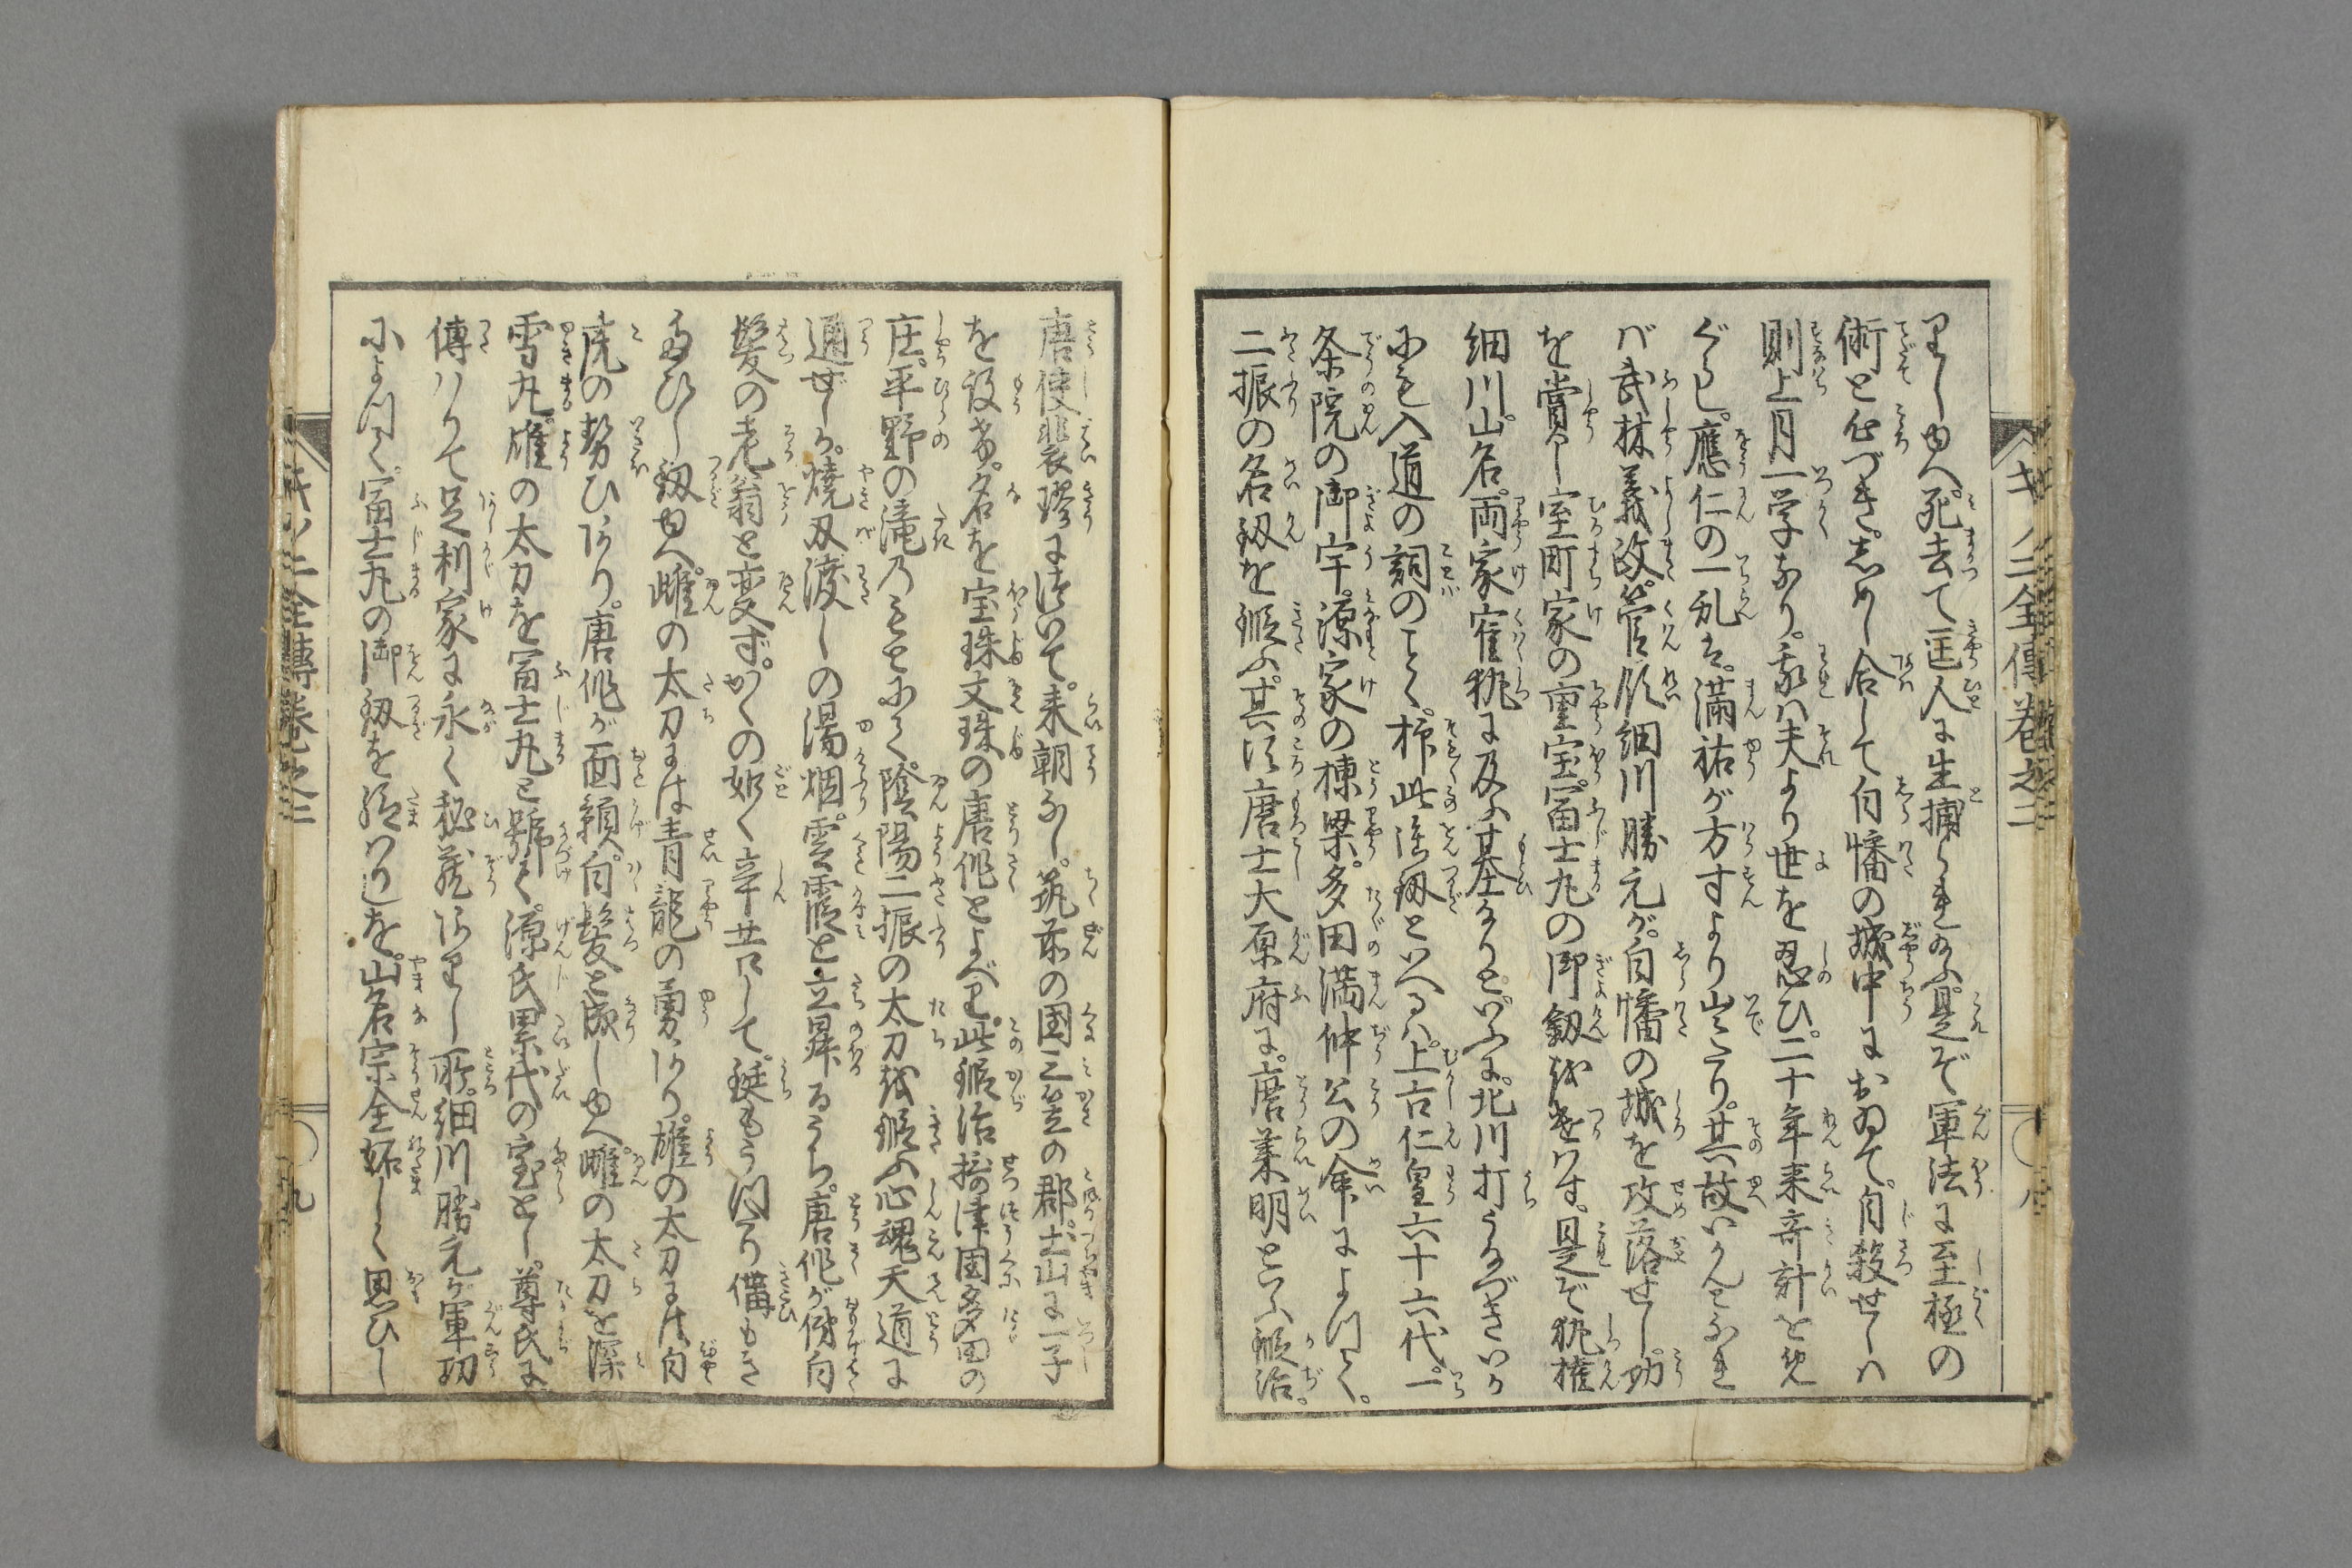 里しゆへ死去て匡人に生捕られ給ふ是ぞ軍法に至極の
術と心づきしめし合して白幡の城中におゐて自殺せしハ
則上月一学なり我ハ夫より世を忍ひ二十年来奇計をめ
ぐらし應仁の一乱は満祐が方寸より出たり其故いかんとなれ
バ武林義政管領細川勝元が白幡の城を攻落せし功
を賞し室町家の重宝冨士丸の御釼を遣ハす是ぞ執権
細川山名両家確執に及ぶ基なりといふに北川打うなづきいか
にも入道の詞のごとく抑此御釼といへるハ上古仁皇六十六代一
条院の御宇源家の棟梁多田満仲公の命によつて
二振の名釼を鍛ふ其頃唐士大原府に唐莱明といふ鍛冶
唐使裴璆に付いて来朝なし筑前の国三笠の郡土山に一子
を設け名を宝珠文珠の唐作とよべり此鍛冶摂津国多田の
庄平野の滝のもとにて陰陽二振の太刀を鍛ふ心魂天道に
通ぜしか焼刃渡しの湯烟雲霞と立昇るうち唐作が俤白
髪の老翁と変ずかくの如く辛苦して鋌もうつたり備もき
たひし釼ゆへ雌の太刀には青龍の勇あり雄の太刀には白
虎の勢ひあり唐作が面額白髪と成しゆへ雌の太刀を深
雪丸雄の太刀を冨士丸と號て源氏累代の宝とし尊氏に
傳ハりて足利家に永く秘蔵ありし所細川勝元が軍功
によつて冨士丸の御釼を給ハりしを山名宗全妬しく思ひし
キノ二全傳巻之二 八
全傳巻之二 九